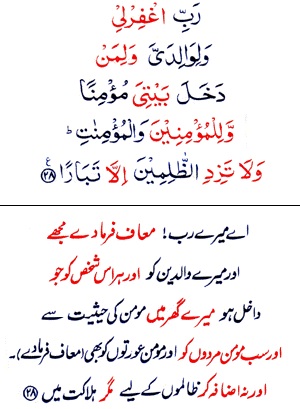 رَبِّ اغْفِرْلِيْ
وَلِوَالِدَيَّ وَلِمَنْ
دَخَلَ بَيْتِيَ مُؤْمِنًا
وَّلِلْمُؤْمِنِيْنَ وَالْمُؤْمِنٰتِ ؕ
وَلَا تَزِدِ الظّٰلِمِيْنَ اِلَّا تَبَارًا ﴿۲۸﴾ ع
اے میرے رب! معاف فرما دے مجھے
اور میرے والدین کو اور ہر اس شخص کو جو
داخل ہو میرے گھر میں مومن کی حیثیت سے
اور سب مؤمن مردوں کو اور مؤمن عورتوں کو بھی (معاف فرما دے)۔
اور نہ اضافہ کر ظالموں کے لیے مگر ہلاکت میں ﴿۲۸﴾